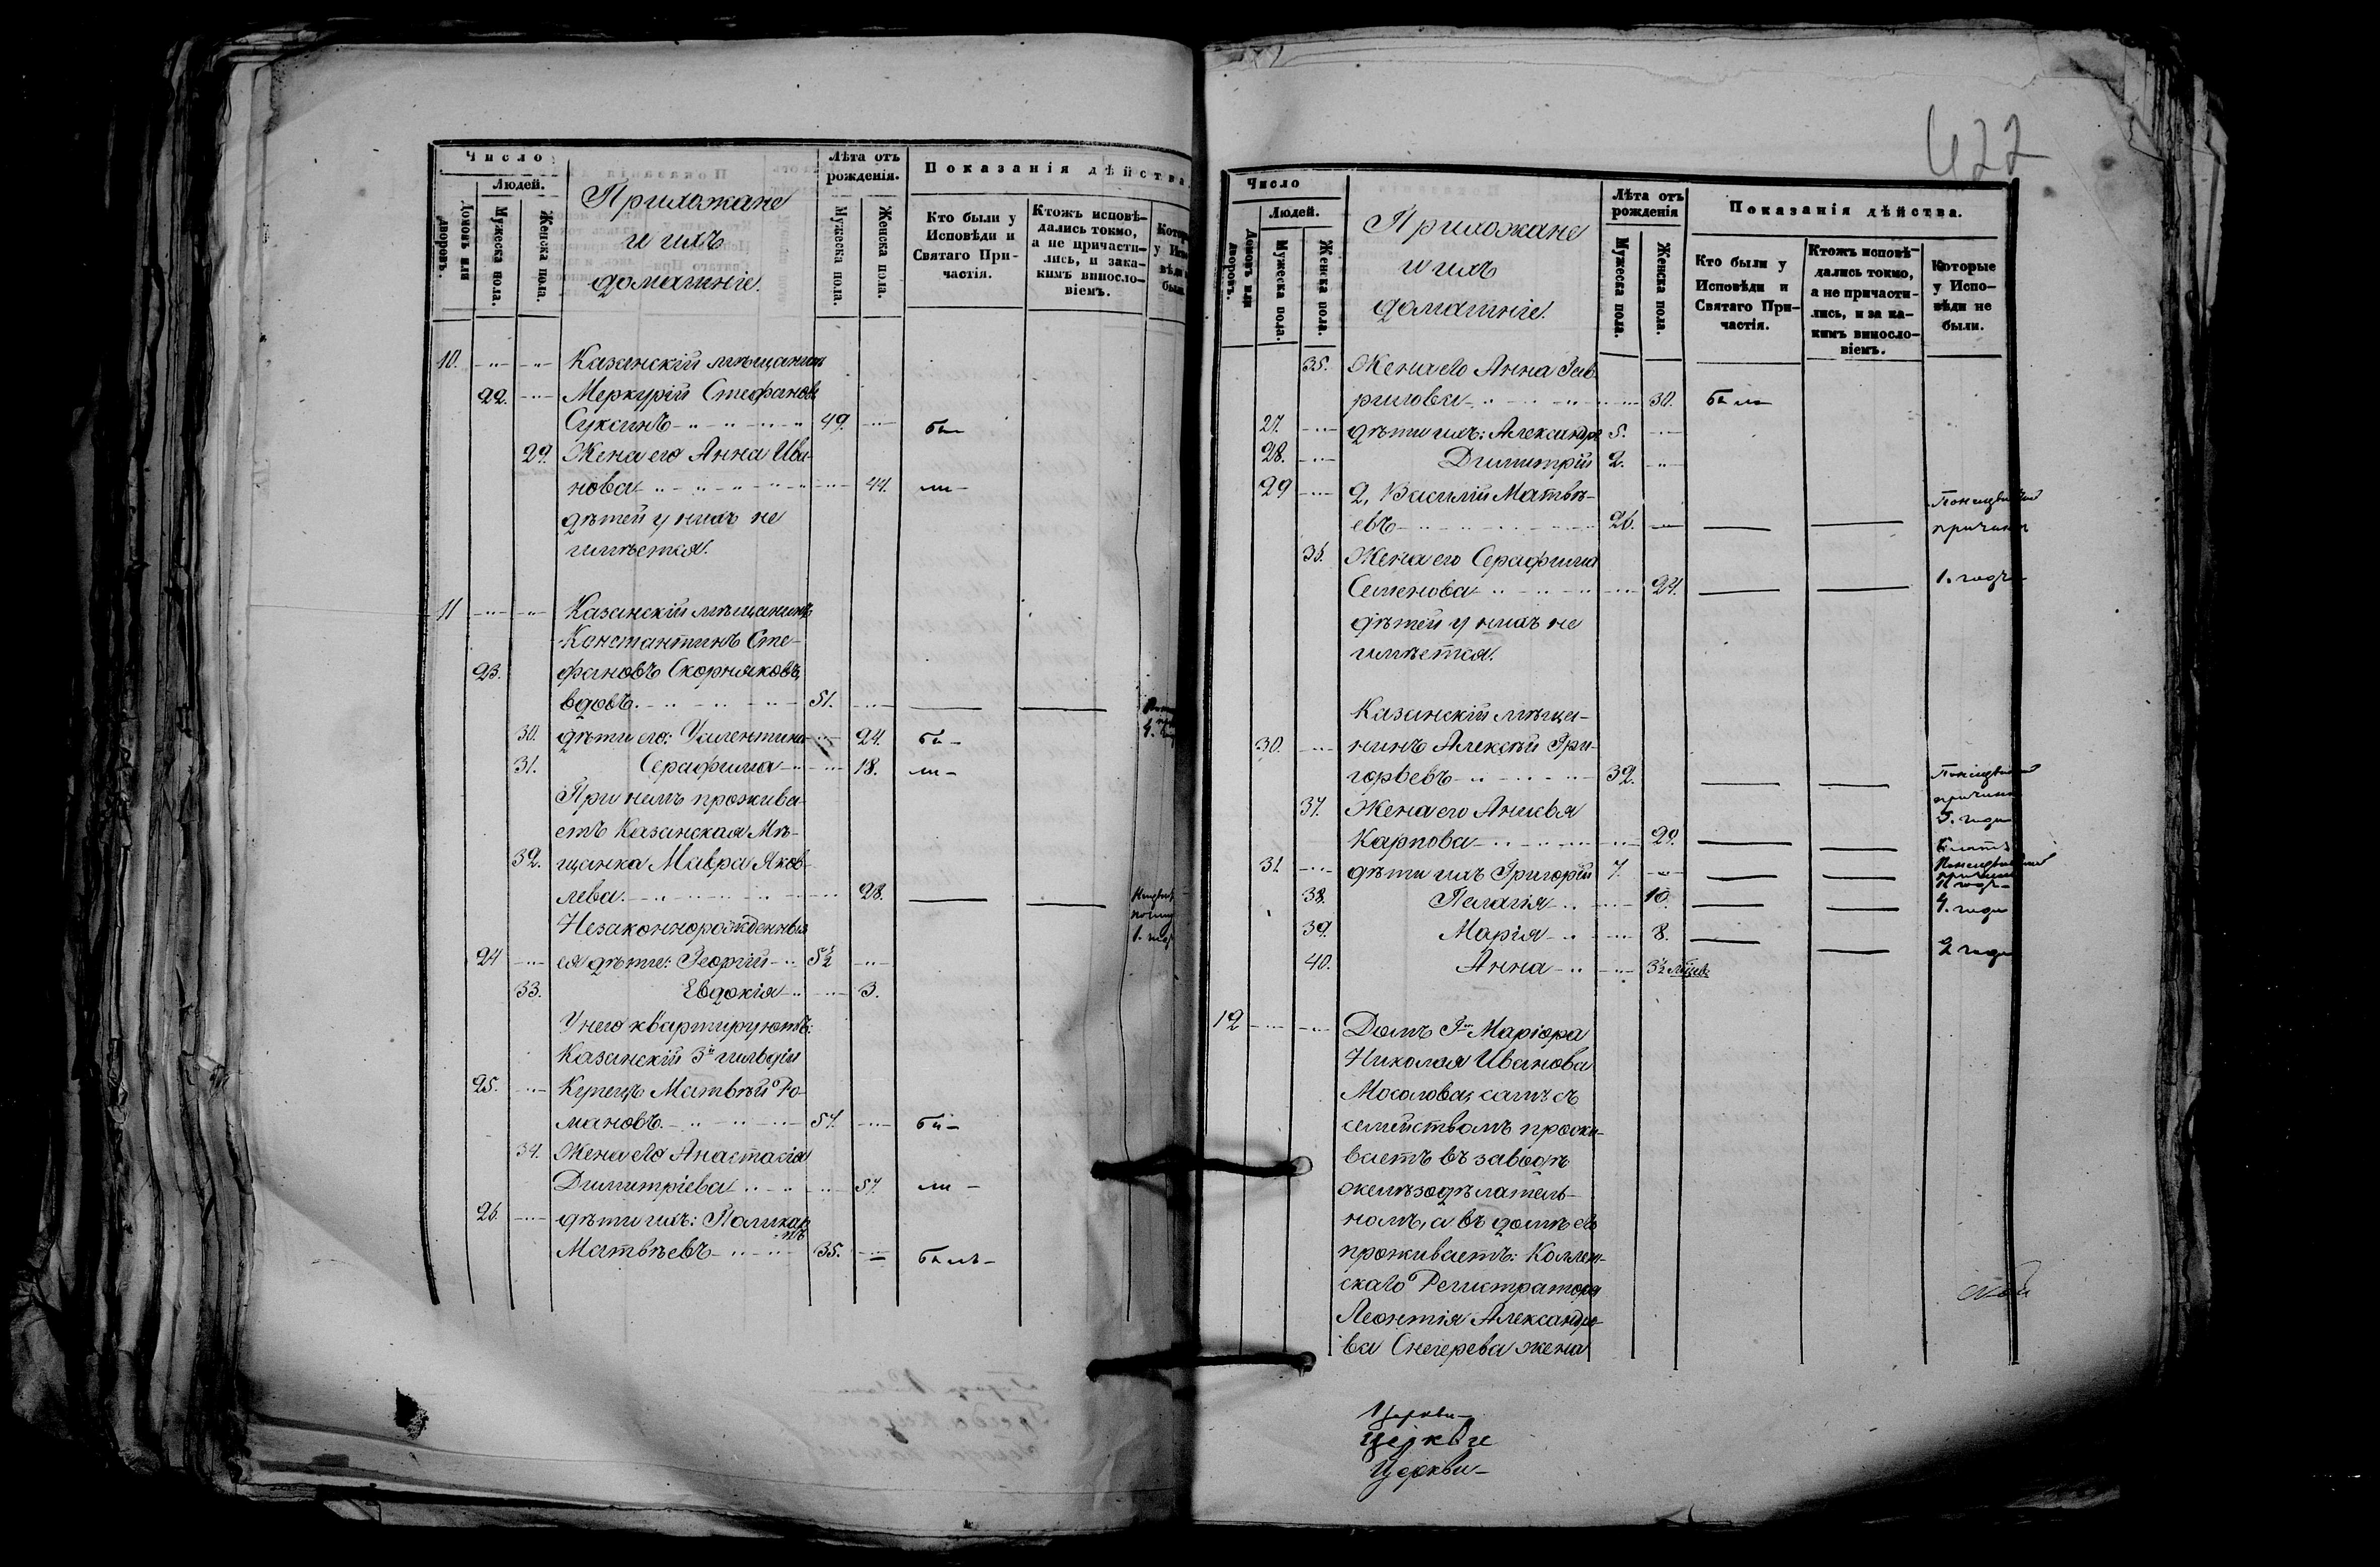 Число
Людей.
Домовъ или дворовъ.
Мужеска пола.
Женска пола.
Прихожане
и ихъ
домашніе.
Лѣта отъ рожденія.
Мужеска пола.
Женска пола.
Показанія дѣйства
Кто были у Исповѣди и Святаго При-
частія.
Ктожъ исповѣ-
дались токмо,
а не причасти-
лись, и зака-
кимъ винносло-
віемъ.
10. Казанскій мѣщанинъ
22. Меркурій Стефановъ
Суксинъ 49. бы
29. Жена его Анна Ива-
нова 44. ли
дѣтей у нихъ не
имѣется.
11 Казанскій мѣщанинъ
Константинъ Сте-
23. фановъ Скорняковъ,
вдовъ. 51.
30. дѣти его: 24. бы
31. Серафима 18. ли
При немъ прожива-
етъ Казанская Мѣ-
32. щанка Мавра Яков-
лева. 28.
Незаконнорожденныя
24 ея дѣти: Георгій 5½
33. Евдокія 3.
У него квартируютъ:
Казанскій 3й гильдіи
25. Купецъ Матвѣй Ро-
мановъ. 57. бы
34. Жена его Анастасія
Димитріева 57. ли
26. дѣти ихъ: Поликар
пъ
Матвѣевъ 35. былъ
422
Число
Людей.
Домовъ или дворовъ.
Мужеска пола.
Женска пола.
Прихожане
и ихъ
домашніе.
Лѣта отъ рожденія
Мужеска пола.
Женска пола.
Показанія дѣйства.
Кто были у
Исповѣди и
Святаго При-
частія.
Ктожъ исповѣ-
дались токмо,
а не причасти-
лись, и за ка-
кимъ винносло-
віемъ.
Которые
у Испо-
вѣди не
были.
35. Жена его Анна Гав-
рилова 30. была
27. дѣти ихъ: Александръ 5.
28. Димитрій 2.
29 2, Василій Матвѣ-
евъ 26. причинѣ
36. Жена его Серафима
Семенова 24. 1. годъ
дѣтей у нихъ не
имѣется.
Казанскій мѣща-
30. нинъ Алексѣй Гри-
горьевъ 32. причинѣ
37. Жена его 3. года
Карпова 29.
31. дѣти ихъ Григорій 7.
38. Пелагія 10. 4. года
39. Марія 8. 2 года
40. Анна 3½
12 Домъ Гна Маіора
Николая Иванова
Мосолова, самъ съ
семействомъ прожи-
ваетъ въ заводѣ
желѣзодѣлатель-
номъ, а въ домѣ его
проживаетъ: Коллеж-
скаго Регистратора
Леонтія Александро-
ва Снегерева жена
Церкви
Церкви
Церкви